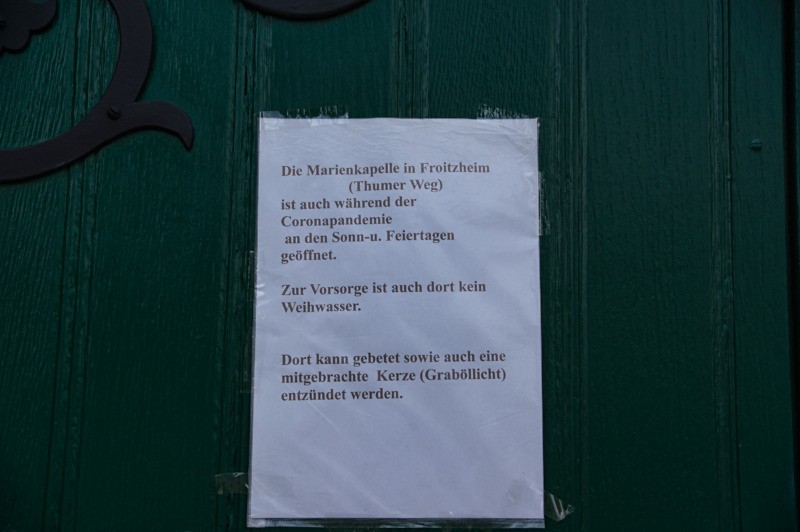 Die Marienkapelle in Froitzheim
(Thumer Weg)
ist auch während der
Coronapandemie
an den Sonn-u. Feiertagen
geöffnet.
Zur Vorsorge ist auch dort kein
Weihwasser.
Dort kann gebetet sowie auch eine
mitgebrachte Kerze (Graböllicht)
entzündet werden.